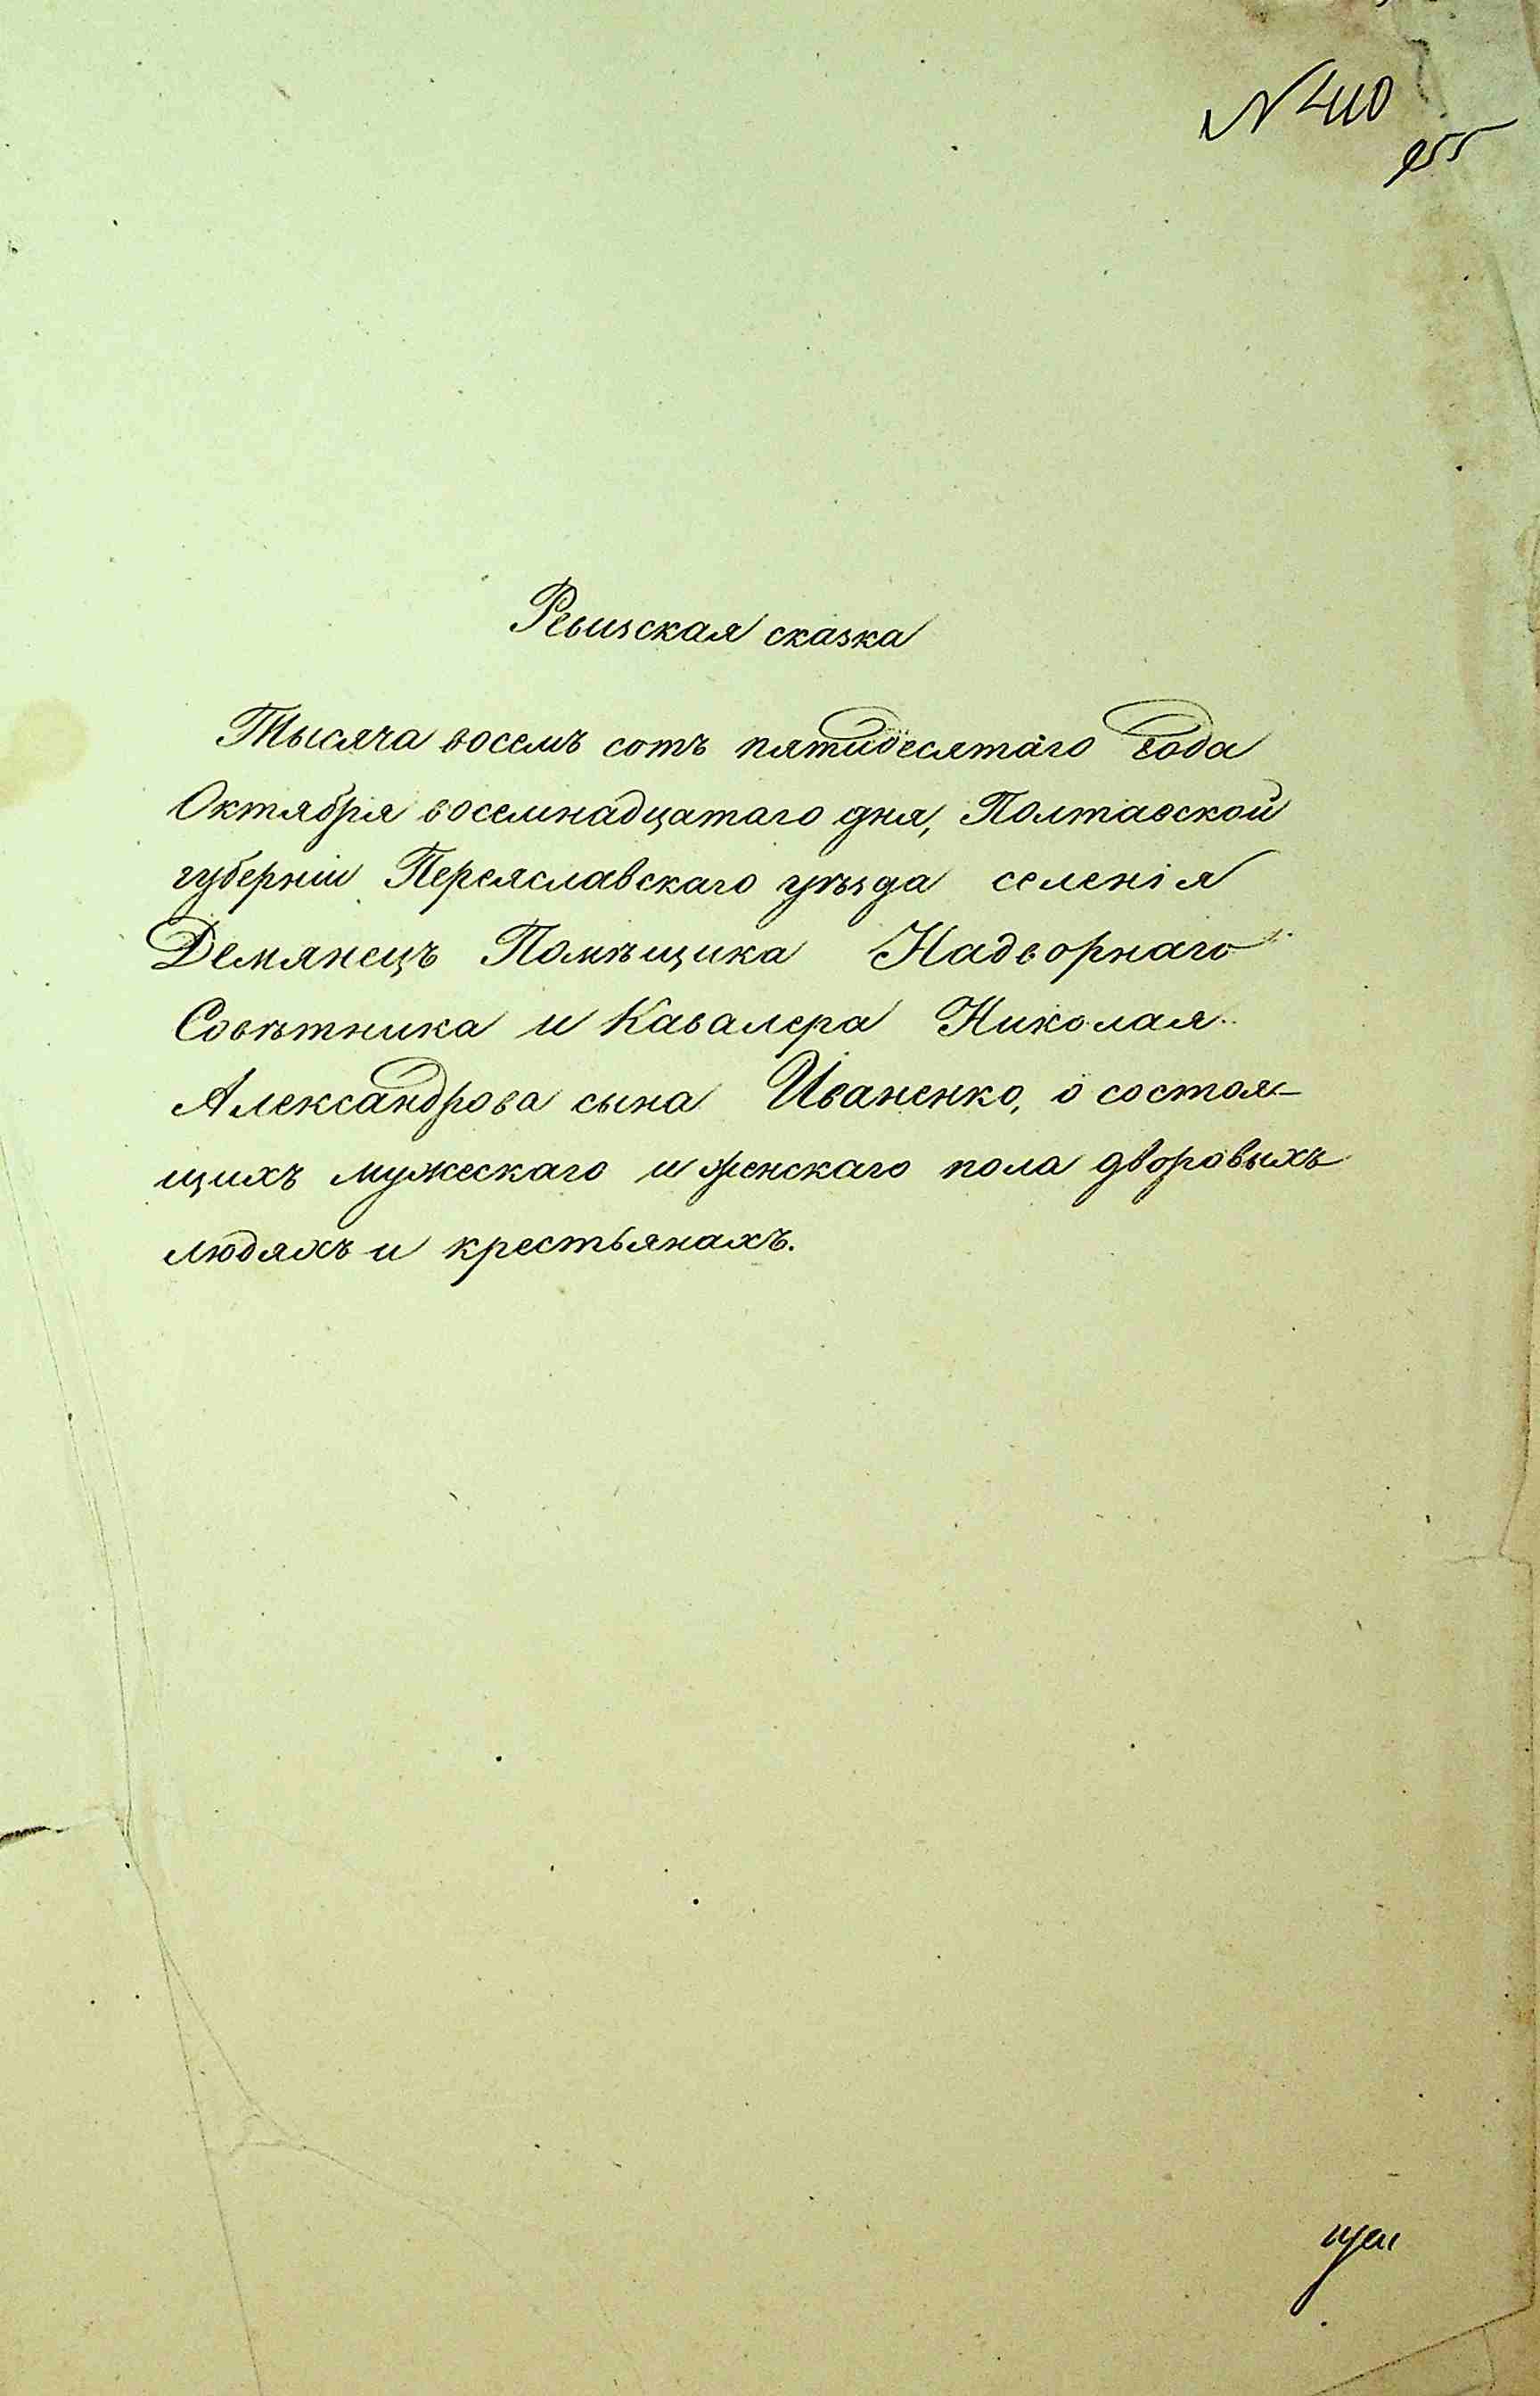 N 410
955
Ревизская сказка
Тысяча восемъ сотъ пятидесятаго года
Октября восемнадцатаго дня, Полтавской
губерніи Переяславскаго уѣзда селенія
Демянецъ Помѣщика Надворнаго
Совѣтника и Кавалера Николая
Александрова сына Иваненко, о состоя-
щихъ мужескаго и женскаго пола дворовыхъ
людяхъ и крестьянахъ.